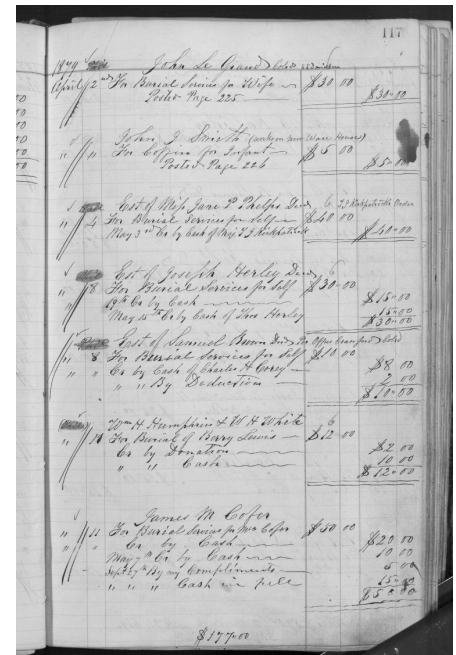 117
1879 John Le Grand Cold
April 2nd For Burial Services for Wife $30 00
Posted Page 225 $30.00
John J Smith (auction Ware House)
" " For Coffin for Infant $5 00
Posted Page 226 $5.00
Est of Miss Jane P Phelps Decd 6 T J Kirkpatrick Order
" 4 For Burial Services for Self $40 00
May 3rd Cr by Cash of Maj T J Kirkpatrick $40.00
Est of Joseph Horley Decd 6
" 8 For Burial Services for Self $30 00
19th Cr by Cash $15.00
May 15th Cr by Cash of Thos Horley 15.00
$30.00
Est of Samuel Brown Decd Cold
" 8 For Burial Services for Self $10 00
" " Cr by Cash of Charles H Corey $8 00
" " By Deduction 2 00
$10.00
Wm H Humphries & W H White 6
" 11 For Burial of Berry Lewis $12 00
Cr by Donation $2 00
" " Cash 10 00
$12.00
James M Cofer
" 11 For Burial Services for Mrs Cofer $50 00
" " Cr by Cash $20 00
May 7th Cr by Cash 10 00
Sept 27th By my Compliments 5 00
" " " Cash in full 15.00
$50.00
$177.00